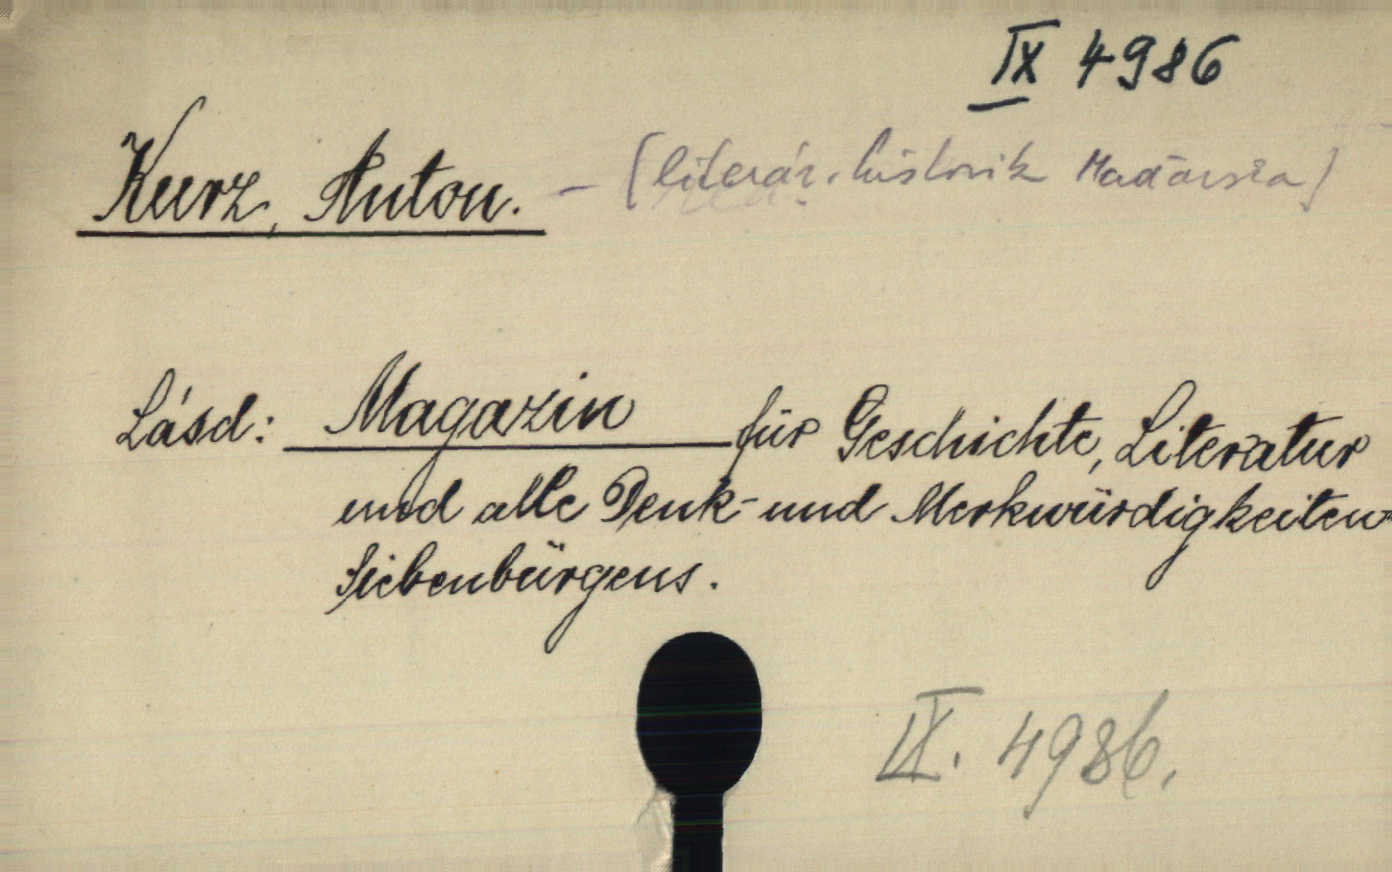 IX 4986
Kurz, Anton. - (literár. historik Maďarska)
Lásd: Magazin für Geschichte, Literatur
und alle Denk- und Merkwürdigkeiten
Siebenbürgens.
IX. 4986.